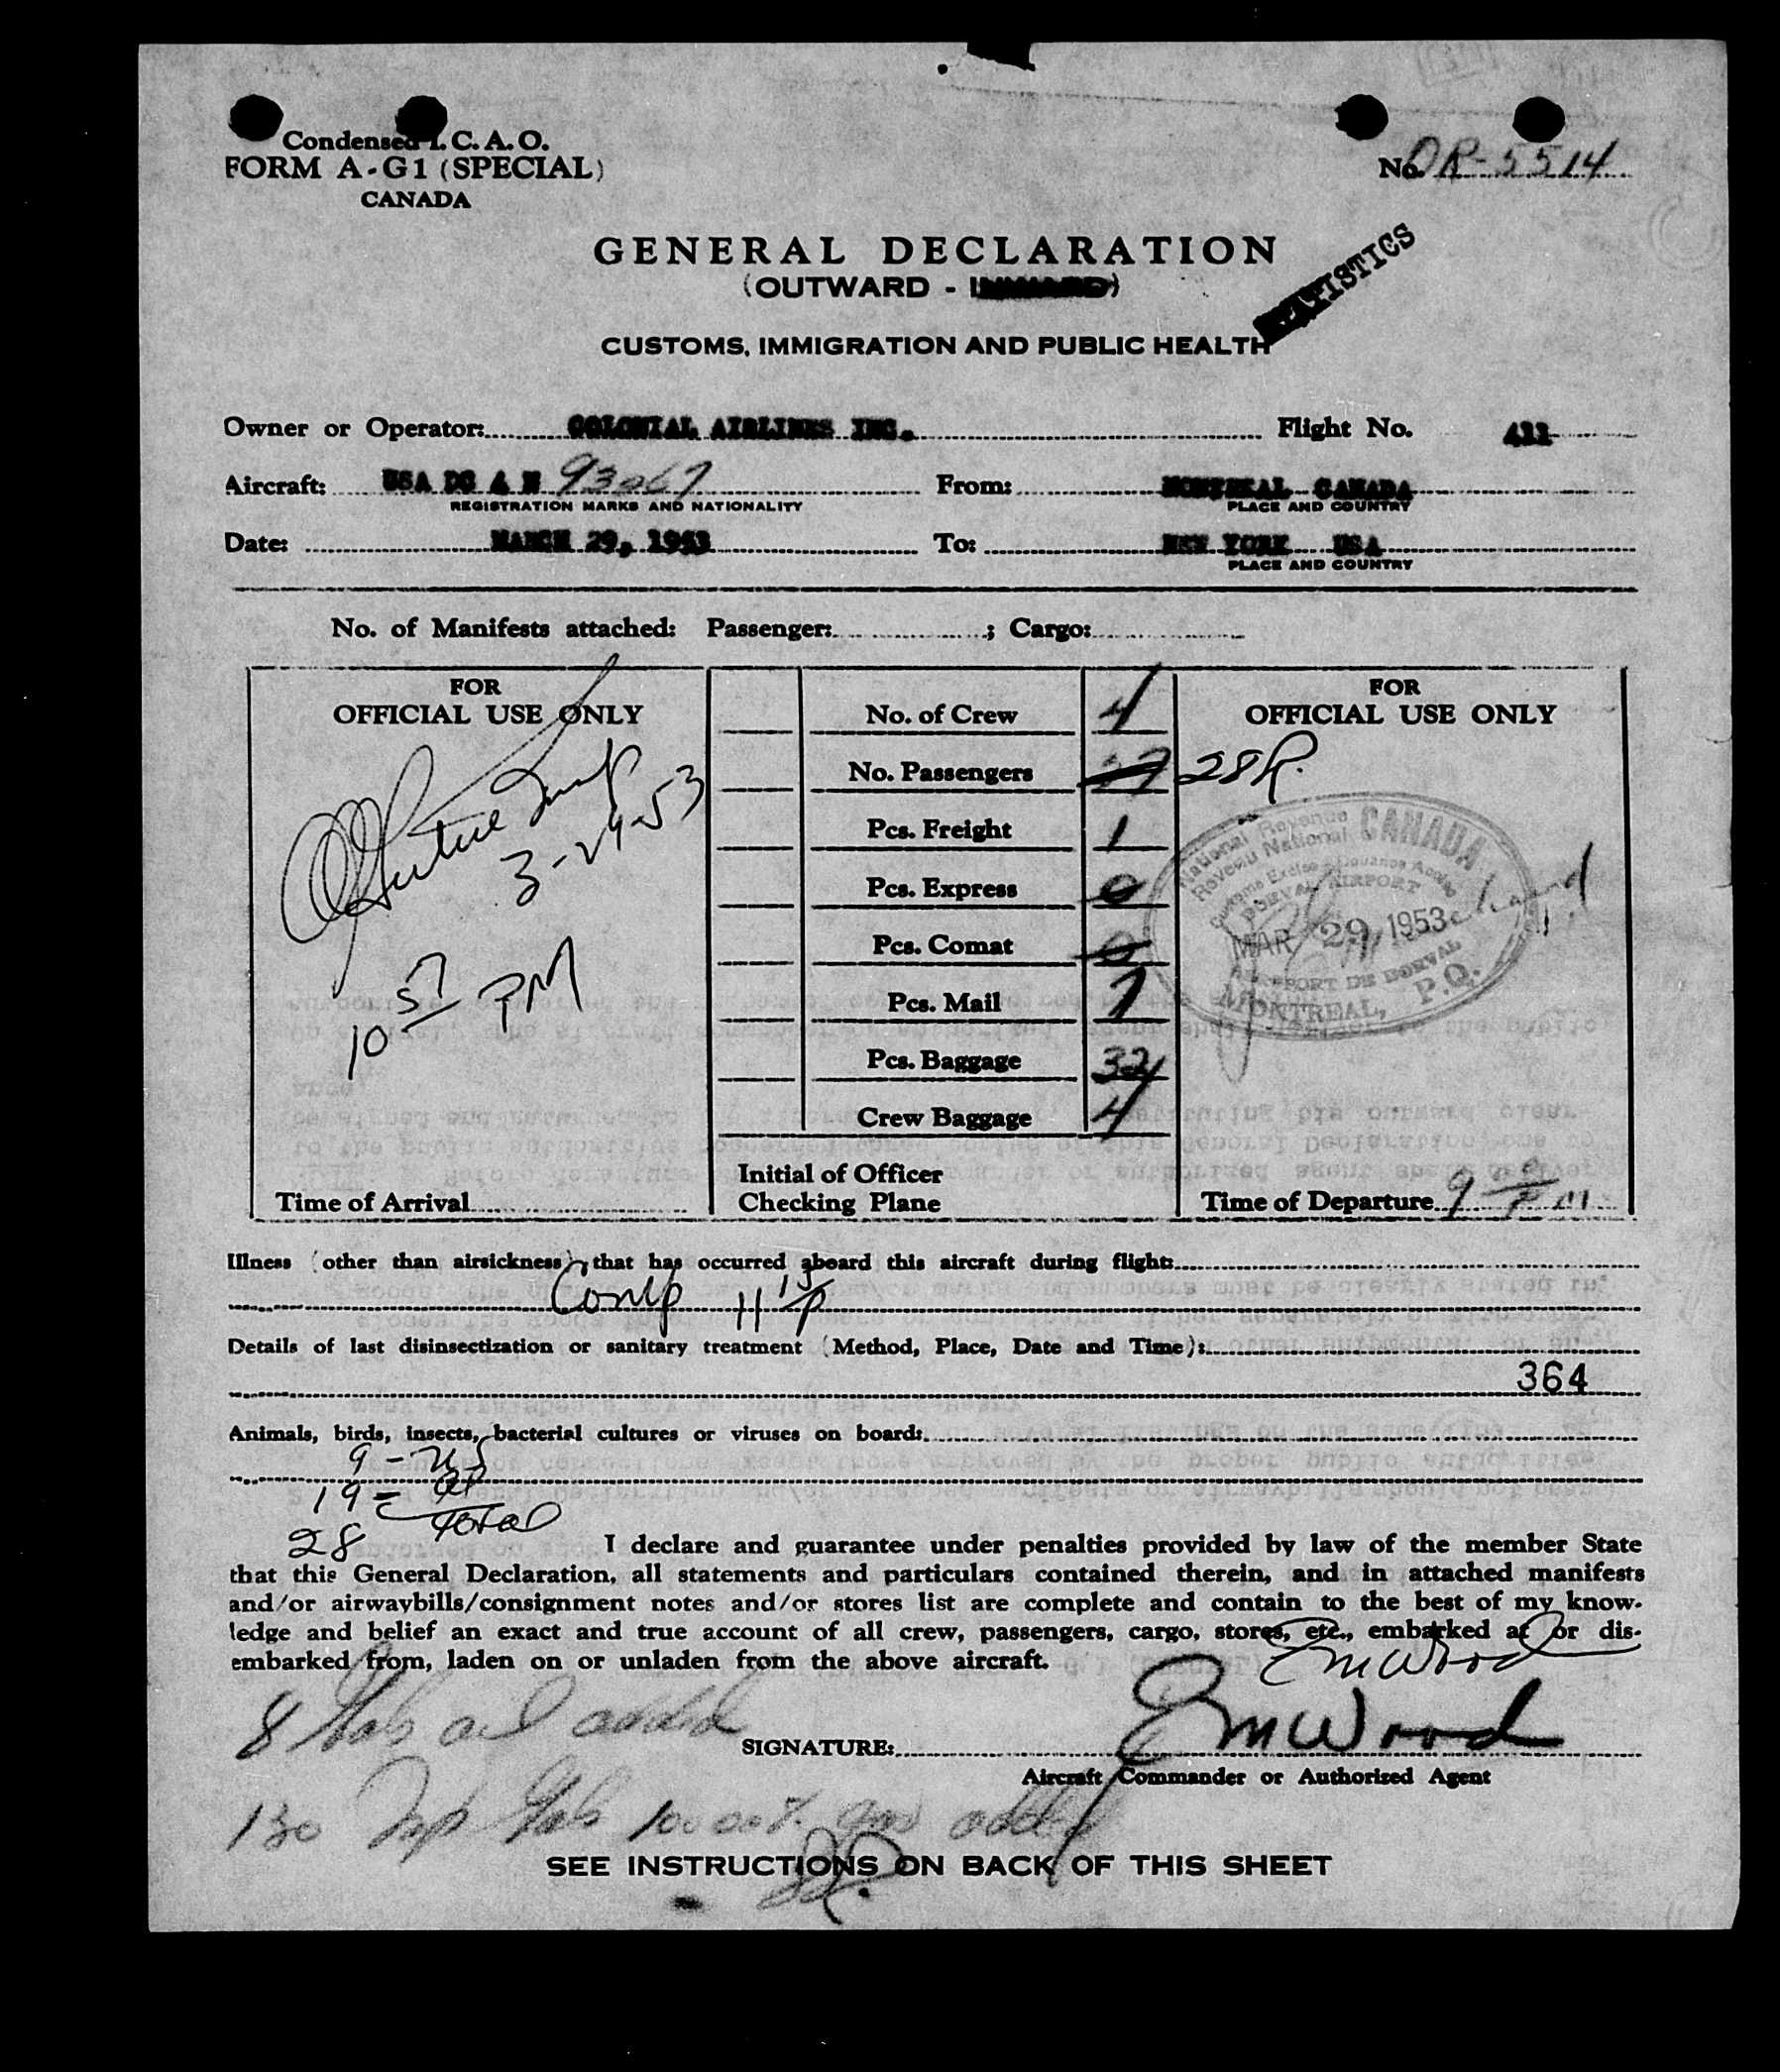 Condensed I.C.A.O.
FORM A-G1 (SPECIAL)
CANADA
No. OR-5514
GENERAL DECLARATION
(OUTWARD - INWARD)
STATISTICS
CUSTOMS, IMMIGRATION AND PUBLIC HEALTH
Owner or Operator: COLONIAL AIRLINES INC. Flight No.
Aircraft: USA DC 4 N 93067 From: MONTREAL CANADA
REGISTRATION MARKS AND NATIONALITY PLACE AND COUNTRY
Date: MARCH 29, 1953 To: NEW YORK USA
PLACE AND COUNTRY
No. of Manifests attached: Passenger: ; Cargo:
FOR
OFFICIAL USE ONLY
3-29-53
10 57 PM
Time of Arrival
No. of Crew 4
No. Passengers 27
Pcs. Freight 1
Pcs. Express 0
Pcs. Comat 0
Pcs. Mail 7
Pcs. Baggage 32
Crew Baggage 4
Initial of Officer
Checking Plane
FOR
OFFICIAL USE ONLY
28
National Revenue CANADA
Revenu National
Customs Excise - Douanes Accise
DORVAL AIRPORT
MAR 29 1953
AEROPORT DE DORVAL
MONTREAL, P.Q.
Time of Departure 9 PM
Illness (other than airsickness) that has occurred aboard this aircraft during flight:
Comp 11 15 P
Details of last disinsectization or sanitary treatment (Method, Place, Date and Time):
364
Animals, birds, insects, bacterial cultures or viruses on board:
9 - US
19 =
28 Total
I declare and guarantee under penalties provided by law of the member State
that this General Declaration, all statements and particulars contained therein, and in attached manifests
and/or airwaybills/consignment notes and/or stores list are complete and contain to the best of my know-
ledge and belief an exact and true account of all crew, passengers, cargo, stores, etc., embarked at or dis-
embarked from, laden on or unladen from the above aircraft.
EmWood
8 Gals oil added
SIGNATURE: EmWood
Aircraft Commander or Authorized Agent
130 Imp Gals 100 oct. gas added
SEE INSTRUCTIONS ON BACK OF THIS SHEET